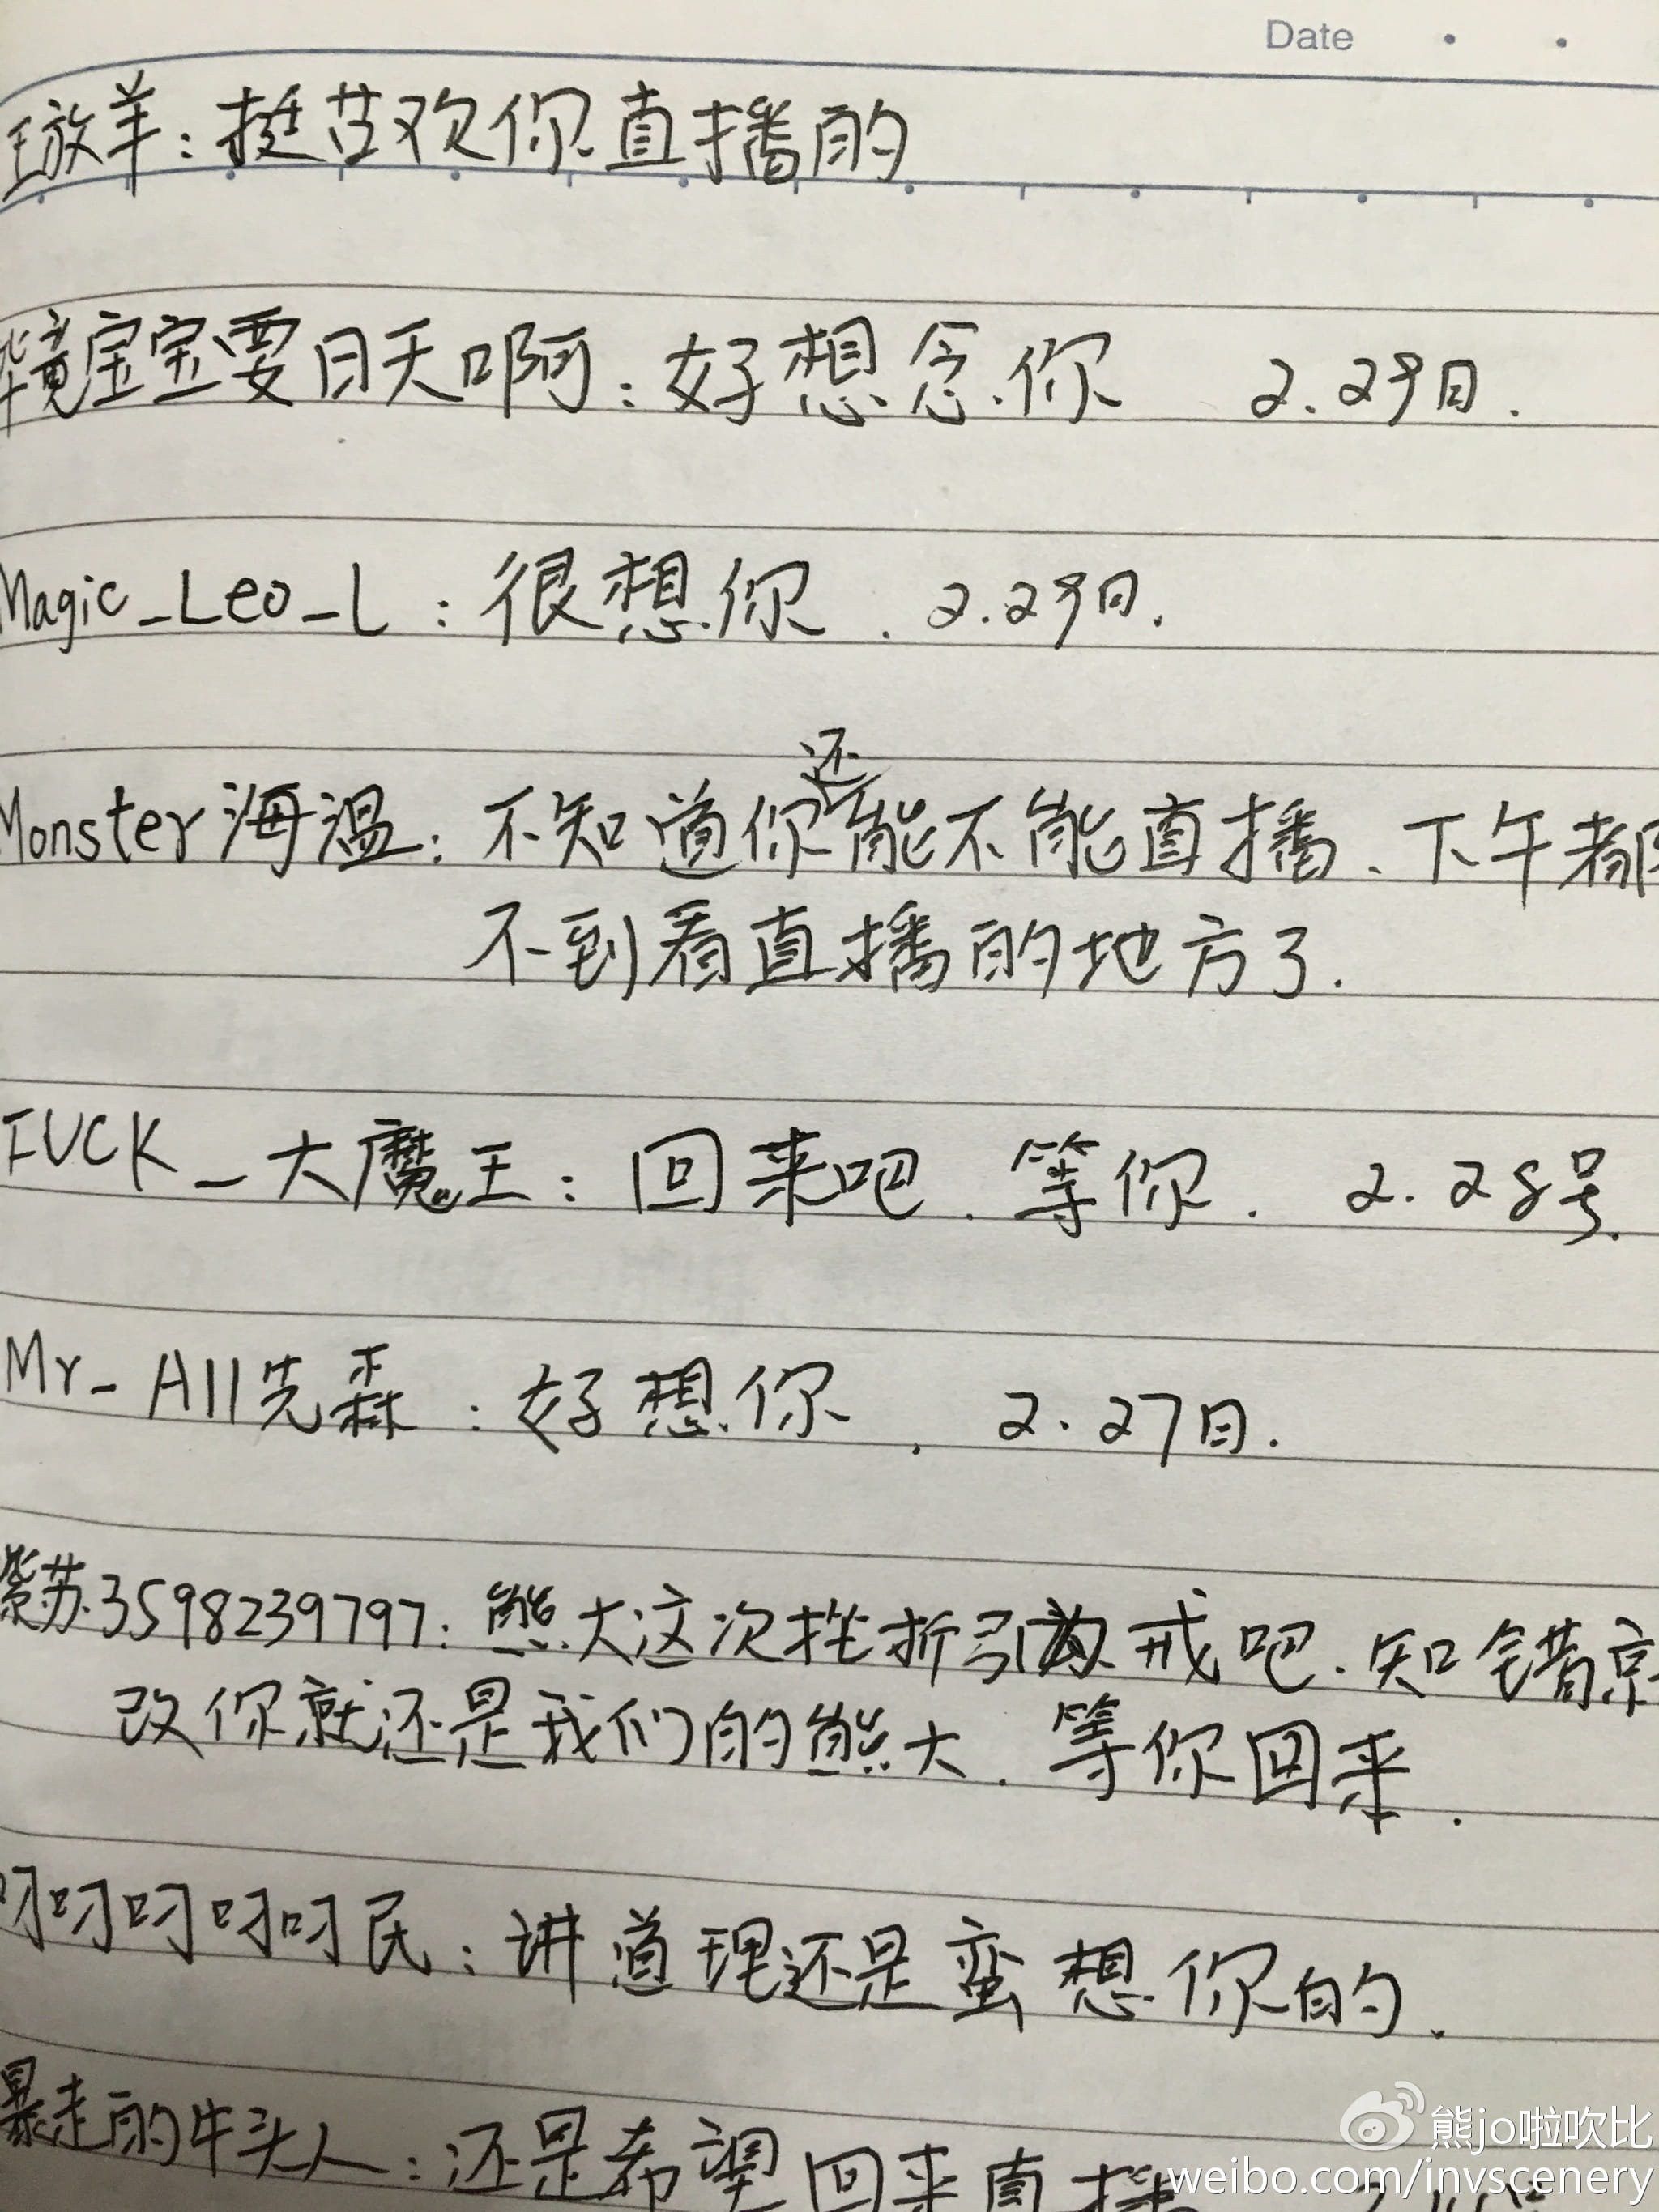 Date
放羊：挺喜欢你直播的
境宝宝要日天啊：好想念你 2.29日.
Magic_Leo_L：很想你. 2.29日.
还
Monster海温：不知道你能不能直播、下午都
不到看直播的地方了.
FUCK_大魔王：回来吧、等你. 2.28号.
Mr_All先森：好想你. 2.27日.
紫苏3598239797：熊大这次挫折引为戒吧、知错就
改你就还是我们的熊大、等你回来.
叼叼叼叼民：讲道理还是蛮想你的.
暴走的牛头人：还是希望回来直播
熊jo啦吹比
weibo.com/invscenery